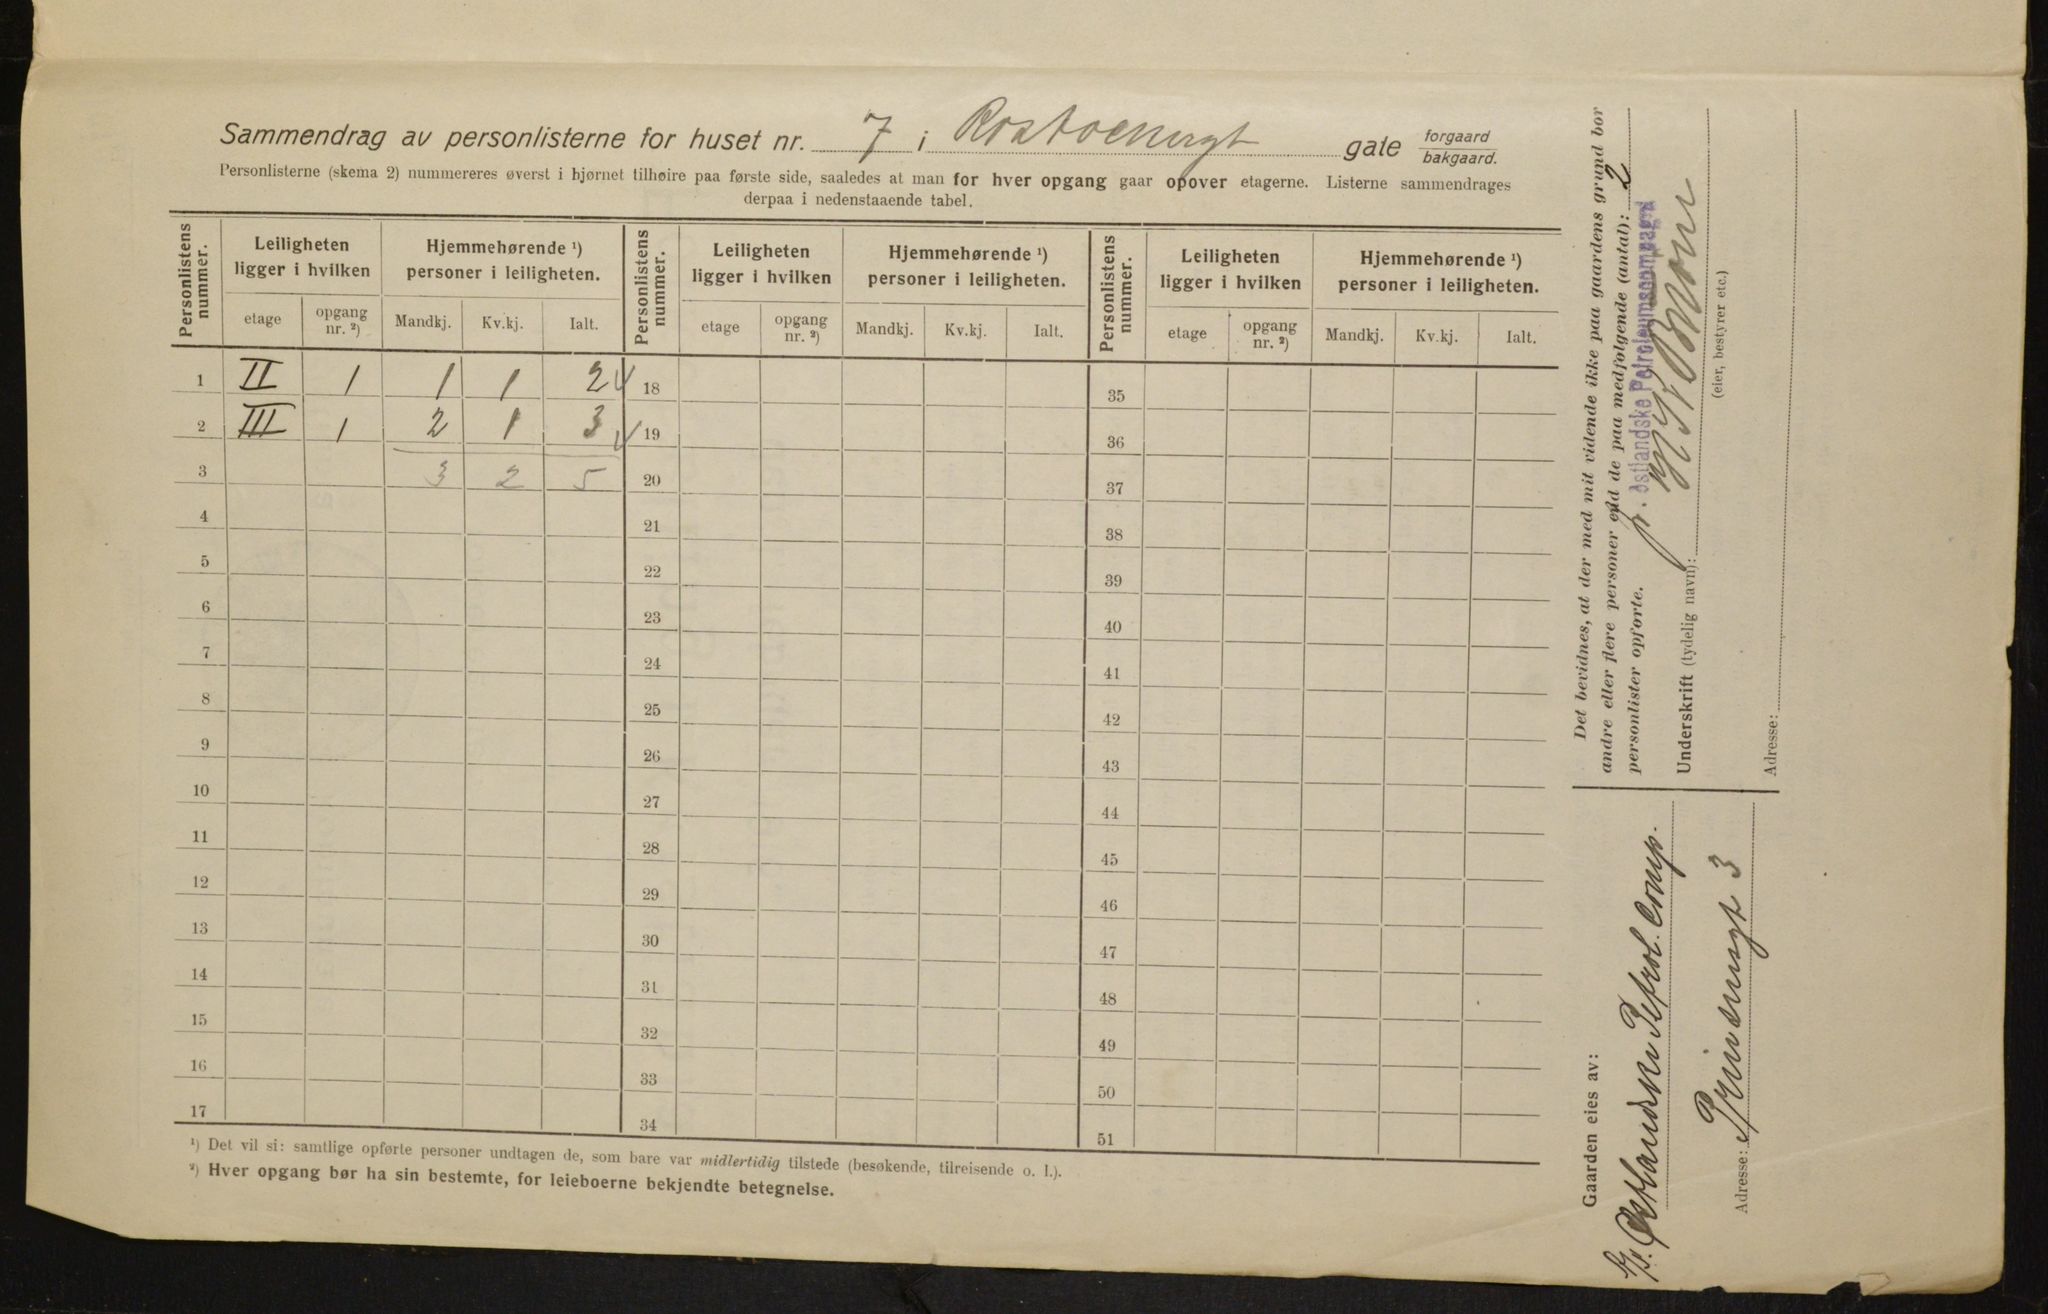 Sammendrag av personlisterne for huset nr. 7 i Rostockergt gate forgaard bakgaard.
Personlisterne (skema 2) nummereres øverst i hjørnet tilhøire paa første side, saaledes at man for hver opgang gaar opover etagerne. Listerne sammendrages
derpaa i nedenstaaende tabel.
Personlistens nummer. Leiligheten ligger i hvilken Hjemmehørende ¹) personer i leiligheten. Personlistens nummer. Leiligheten ligger i hvilken Hjemmehørende ¹) personer i leiligheten. Personlistens nummer. Leiligheten ligger i hvilken Hjemmehørende ¹) personer i leiligheten.
etage opgang nr. ²) Mandkj. Kv.kj. Ialt. etage opgang nr. ²) Mandkj. Kv.kj. Ialt. etage opgang nr. ²) Mandkj. Kv.kj. Ialt.
1 II 1 1 1 2 18 35
2 III 1 2 1 3 19 36
3 3 2 5 20 37
4 21 38
5 22 39
6 23 40
7 24 41
8 25 42
9 26 43
10 27 44
11 28 45
12 29 46
13 30 47
14 31 48
15 32 49
16 33 50
17 34 51
¹) Det vil si: samtlige opførte personer undtagen de, som bare var midlertidig tilstede (besøkende, tilreisende o. l.).
²) Hver opgang bør ha sin bestemte, for leieboerne bekjendte betegnelse.
Det bevidnes, at der med mit vidende ikke paa gaardens grund bor
andre eller flere personer end de paa medfølgende (antal): 2
personlister opførte.
p. Østlandske Petroleumscompagni
Underskrift (tydelig navn):
(eier, bestyrer etc.)
Adresse:
Gaarden eies av:
A/S. Østlandske Petrol. Comp.
Adresse: Prinsensgt 3